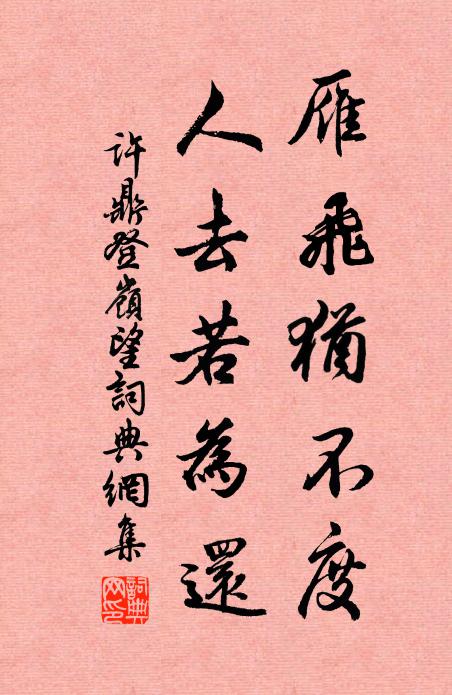 雁飛猶不度
人去若為還
許鼎登嶺望詞典網集
詞典
网印